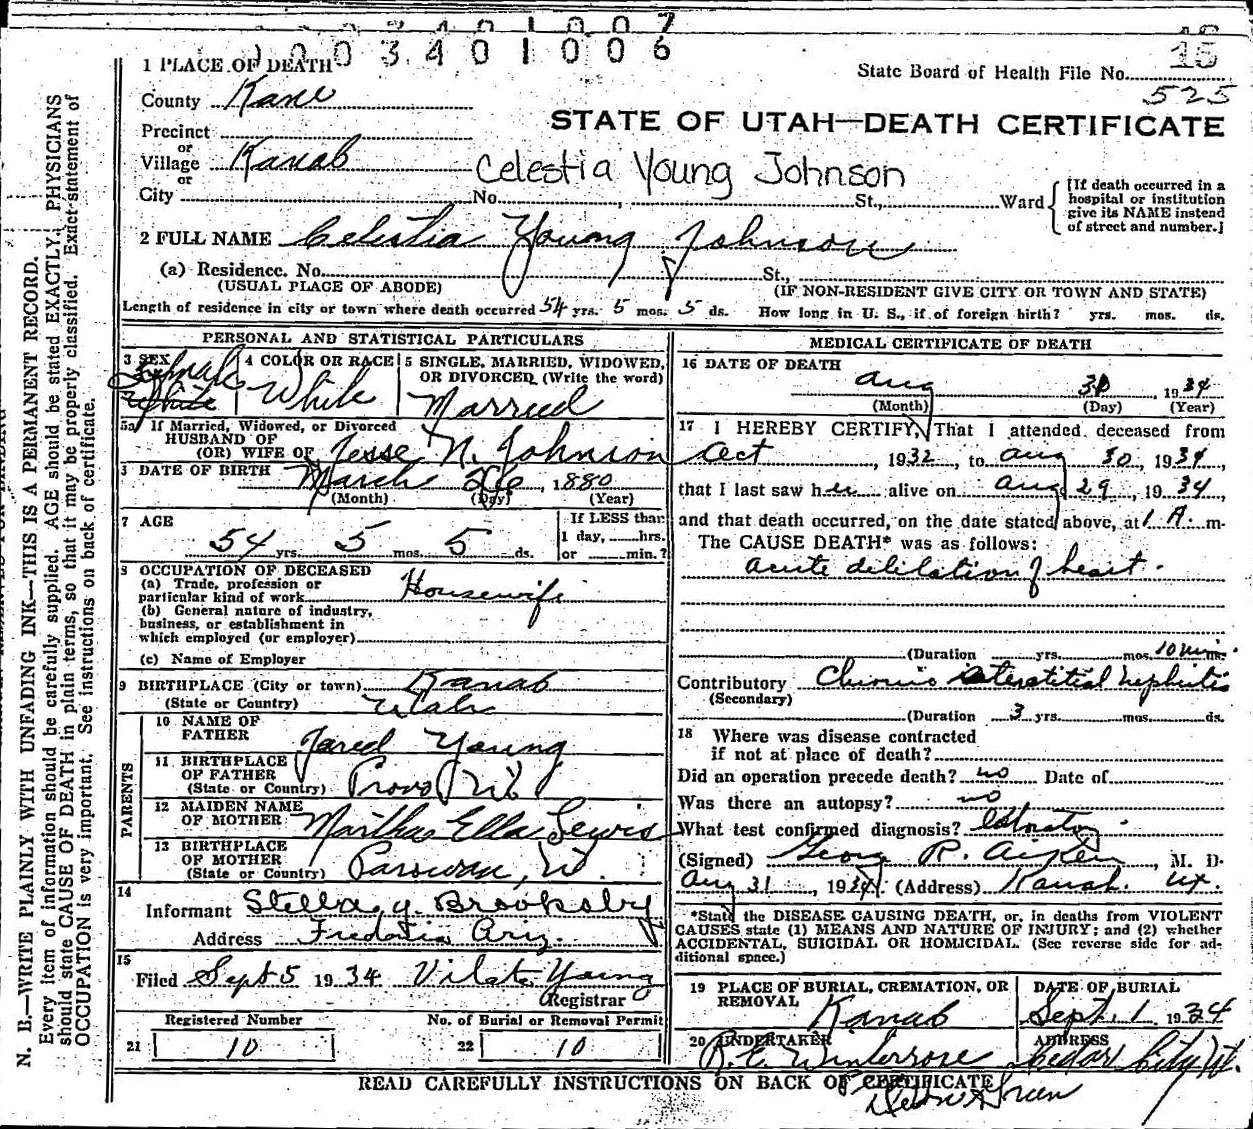 1 0 0 3 4 0 1 0 0 7
1 0 0 3 4 0 1 0 0 6
15
State Board of Health File No.
525
1 PLACE OF DEATH
County Kane
STATE OF UTAH—DEATH CERTIFICATE
Precinct
or
Village Kanab
Celestia Young Johnson
or
City No. , St., Ward
[If death occurred in a
hospital or institution
give its NAME instead
of street and number.]
2 FULL NAME Celestia Young Johnson
(a) Residence. No. St.,
(USUAL PLACE OF ABODE) (IF NON-RESIDENT GIVE CITY OR TOWN AND STATE)
Length of residence in city or town where death occurred 54 yrs. 5 mos. 5 ds. How long in U. S., if of foreign birth? yrs. mos. ds.
PERSONAL AND STATISTICAL PARTICULARS
3 SEX Female
White
4 COLOR OR RACE
White
5 SINGLE, MARRIED, WIDOWED,
OR DIVORCED (Write the word)
Married
5a If Married, Widowed, or Divorced
HUSBAND OF
(OR) WIFE OF Jesse N. Johnson
DATE OF BIRTH March 26, 1880
(Month) (Day) (Year)
7 AGE
54 yrs. 5 mos. 5 ds.
If LESS than
1 day, hrs.
or min.?
OCCUPATION OF DECEASED
(a) Trade, profession or
particular kind of work Housewife
(b) General nature of industry,
business, or establishment in
which employed (or employer)
(c) Name of Employer
9 BIRTHPLACE (City or town) Kanab
(State or Country) Utah
PARENTS
10 NAME OF
FATHER Jared Young
11 BIRTHPLACE
OF FATHER
(State or Country) Provo Ut
12 MAIDEN NAME
OF MOTHER Martha Ella Lewis
13 BIRTHPLACE
OF MOTHER
(State or Country) Parowan, Ut.
14
Informant Stella Y. Brooksby
Address Fredonia Ariz.
15
Filed Sept 5 1934 Vilate Young
Registrar
Registered Number No. of Burial or Removal Permit
21 10 22 10
MEDICAL CERTIFICATE OF DEATH
16 DATE OF DEATH
Aug 31, 1934
(Month) (Day) (Year)
17 I HEREBY CERTIFY, That I attended deceased from
Oct, 1932, to Aug 30, 1934,
that I last saw her alive on Aug 29, 1934,
and that death occurred, on the date stated above, at 1 A. m.
The CAUSE DEATH* was as follows:
acute dililation of heart.
(Duration yrs. mos. 10 min.
Contributory Chronic interstitial nephritis
(Secondary)
(Duration 3 yrs. mos. ds.
18 Where was disease contracted
if not at place of death?
Did an operation precede death? no Date of
Was there an autopsy? no
What test confirmed diagnosis?
(Signed) George R. Aiken, M. D.
Aug 31, 1934 (Address) Kanab. Ut.
*State the DISEASE CAUSING DEATH, or, in deaths from VIOLENT
CAUSES state (1) MEANS AND NATURE OF INJURY; and (2) whether
ACCIDENTAL, SUICIDAL OR HOMICIDAL. (See reverse side for ad-
ditional space.)
19 PLACE OF BURIAL, CREMATION, OR
REMOVAL Kanab
DATE OF BURIAL
Sept. 1 1934
20 UNDERTAKER
Winterrose
ADDRESS
Cedar City Ut.
READ CAREFULLY INSTRUCTIONS ON BACK OF CERTIFICATE
N. B.—WRITE PLAINLY WITH UNFADING INK—THIS IS A PERMANENT RECORD.
Every item of information should be carefully supplied. AGE should be stated EXACTLY. PHYSICIANS
should state CAUSE OF DEATH in plain terms, so that it may be properly classified. Exact statement of
OCCUPATION is very important. See instructions on back of certificate.